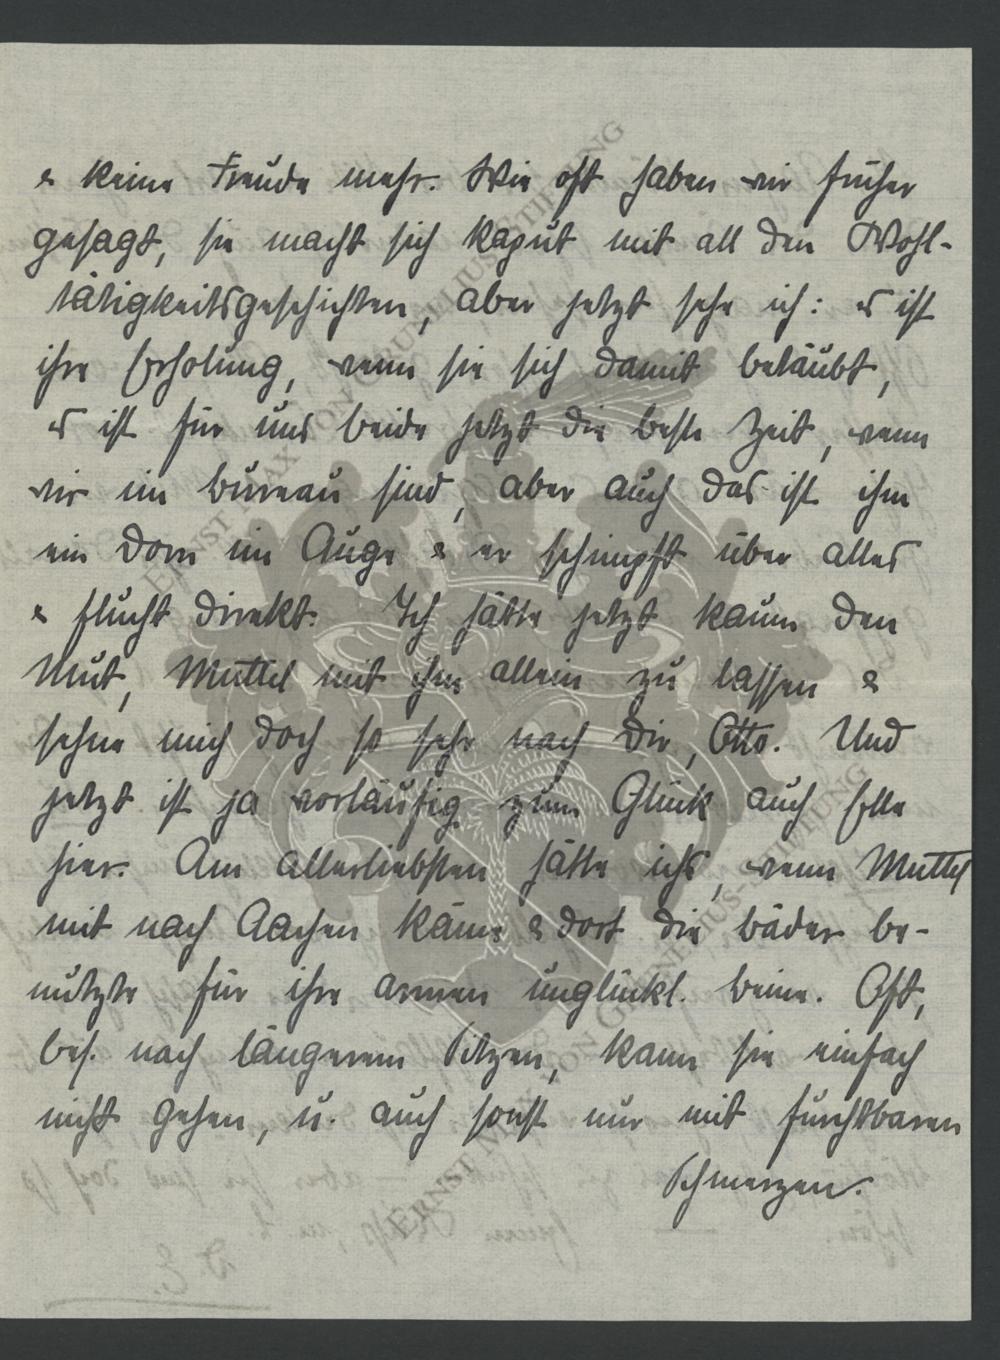 & keine Freude mehr. Wie oft haben wir früher
gesagt, sie macht sich kaput mit all den Wohl-
tätigkeitsgeschichten, aber jetzt sehe ich: es ist
ihre Erholung, wenn sie sich damit betäubt,
es ist für uns beide jetzt die beste Zeit, wenn
wir im bureau sind, aber auch das ist ihm
ein Dorn im Auge & er schimpft über alles
& flucht direkt. Ich hätte jetzt kaum den
Mut, Muttel mit ihm allein zu lassen &
sehne mich doch so sehr nach Dir, Otto. Und
jetzt ist ja vorläufig zum Glück auch Elle
hier. Am allerliebsten hätte ichs, wenn Muttel
mit nach Aachen käme & dort die bäder be-
nutzte für ihre armen unglückl. beine. Oft,
bes. nach längerem Sitzen, kann sie einfach
nicht gehen, u. auch sonst nur mit furchtbaren
Schmerzen.
ERNST MAX VON GRUNELIUS-STIFTUNG
ERNST MAX VON GRUNELIUS-STIFTUNG